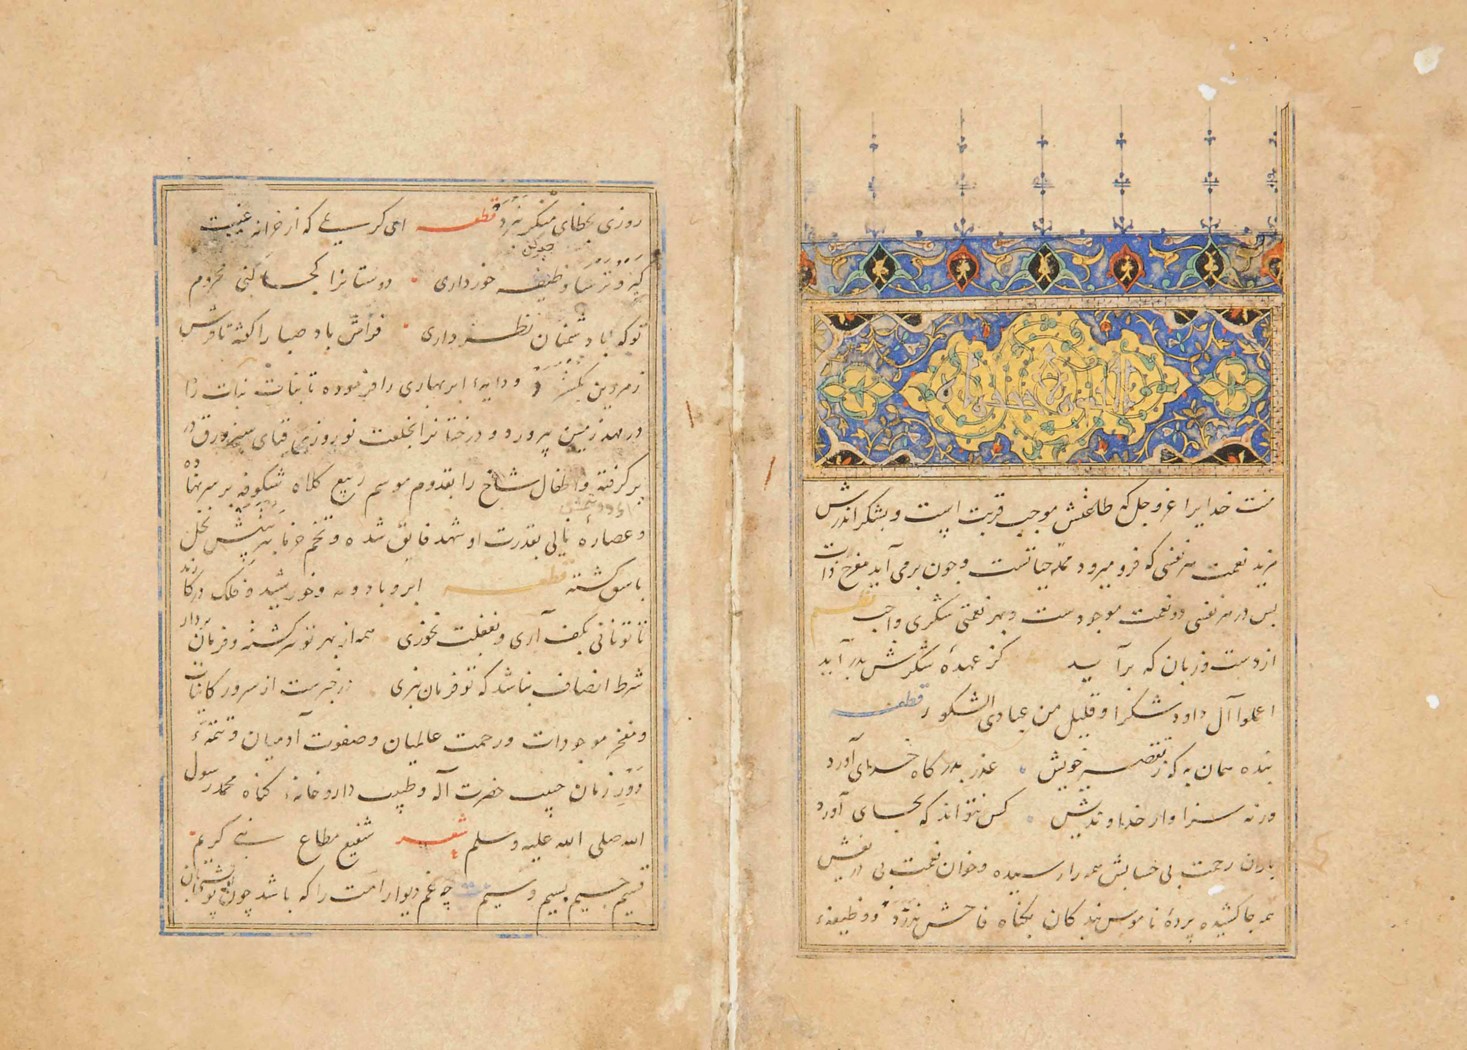 منت خدایرا عز و جل که طاعتش موجب قربت است و بشکر اندرش
مزید نعمت هر نفسی که فرو میرود ممد حیاتست و چون برمی آید مفرح ذات
پس در هر نفسی دو نعمت موجودست و بهر نعمتی شکری واجب نظم
از دست و زبان که برآید کز عهدهٔ شکرش بدر آید
اعملوا آل داود شکرا و قلیل من عبادی الشکور قطعه
بنده همان به که ز تقصیر خویش عذر بدرگاه خدای آورد
ورنه سزاوار خداوندیش کس نتواند که بجای آورد
باران رحمت بی حسابش همه را رسیده و خوان نعمت بی دریغش
همه جا کشیده پردهٔ ناموس بندگان بگناه فاحش ندرد و وظیفهٔ
روزی بخطای منکر نبرد قطعه ای کریمی که از خزانه غیب
گبر و ترسا وظیفه خور داری دوستانرا کجا کنی محروم
تو که با دشمنان نظر داری فراش باد صبا را گفته تا فرش
زمردین بگسترد و دایهٔ ابر بهاری را فرموده تا بنات نبات را
در مهد زمین بپرورد و درختانرا بخلعت نوروزی قبای سبز ورق در
بر گرفته و اطفال شاخ را بقدوم موسم ربیع کلاه شکوفه بر سر نهاده
و عصارهٔ نالی بقدرت او شهد فایق شده و تخم خرما بتربیتش نخل
باسق گشته قطعه ابر و باد و مه و خورشید و فلک در کارند
تا تو نانی بکف آری و بغفلت نخوری همه از بهر تو سرگشته و فرمان بردار
شرط انصاف نباشد که تو فرمان نبری در خبرست از سرور کاینات
و مفخر موجودات و رحمت عالمیان و صفوت آدمیان و تتمهٔ
دور زمان حبیب حضرت آله و طبیب داروخانه گناه محمد رسول
الله صلی الله علیه و سلم شعر شفیع مطاع نبی کریم
قسیم جسیم بسیم وسیم چه غم دیوار امت را که باشد چون تو پشتیبان